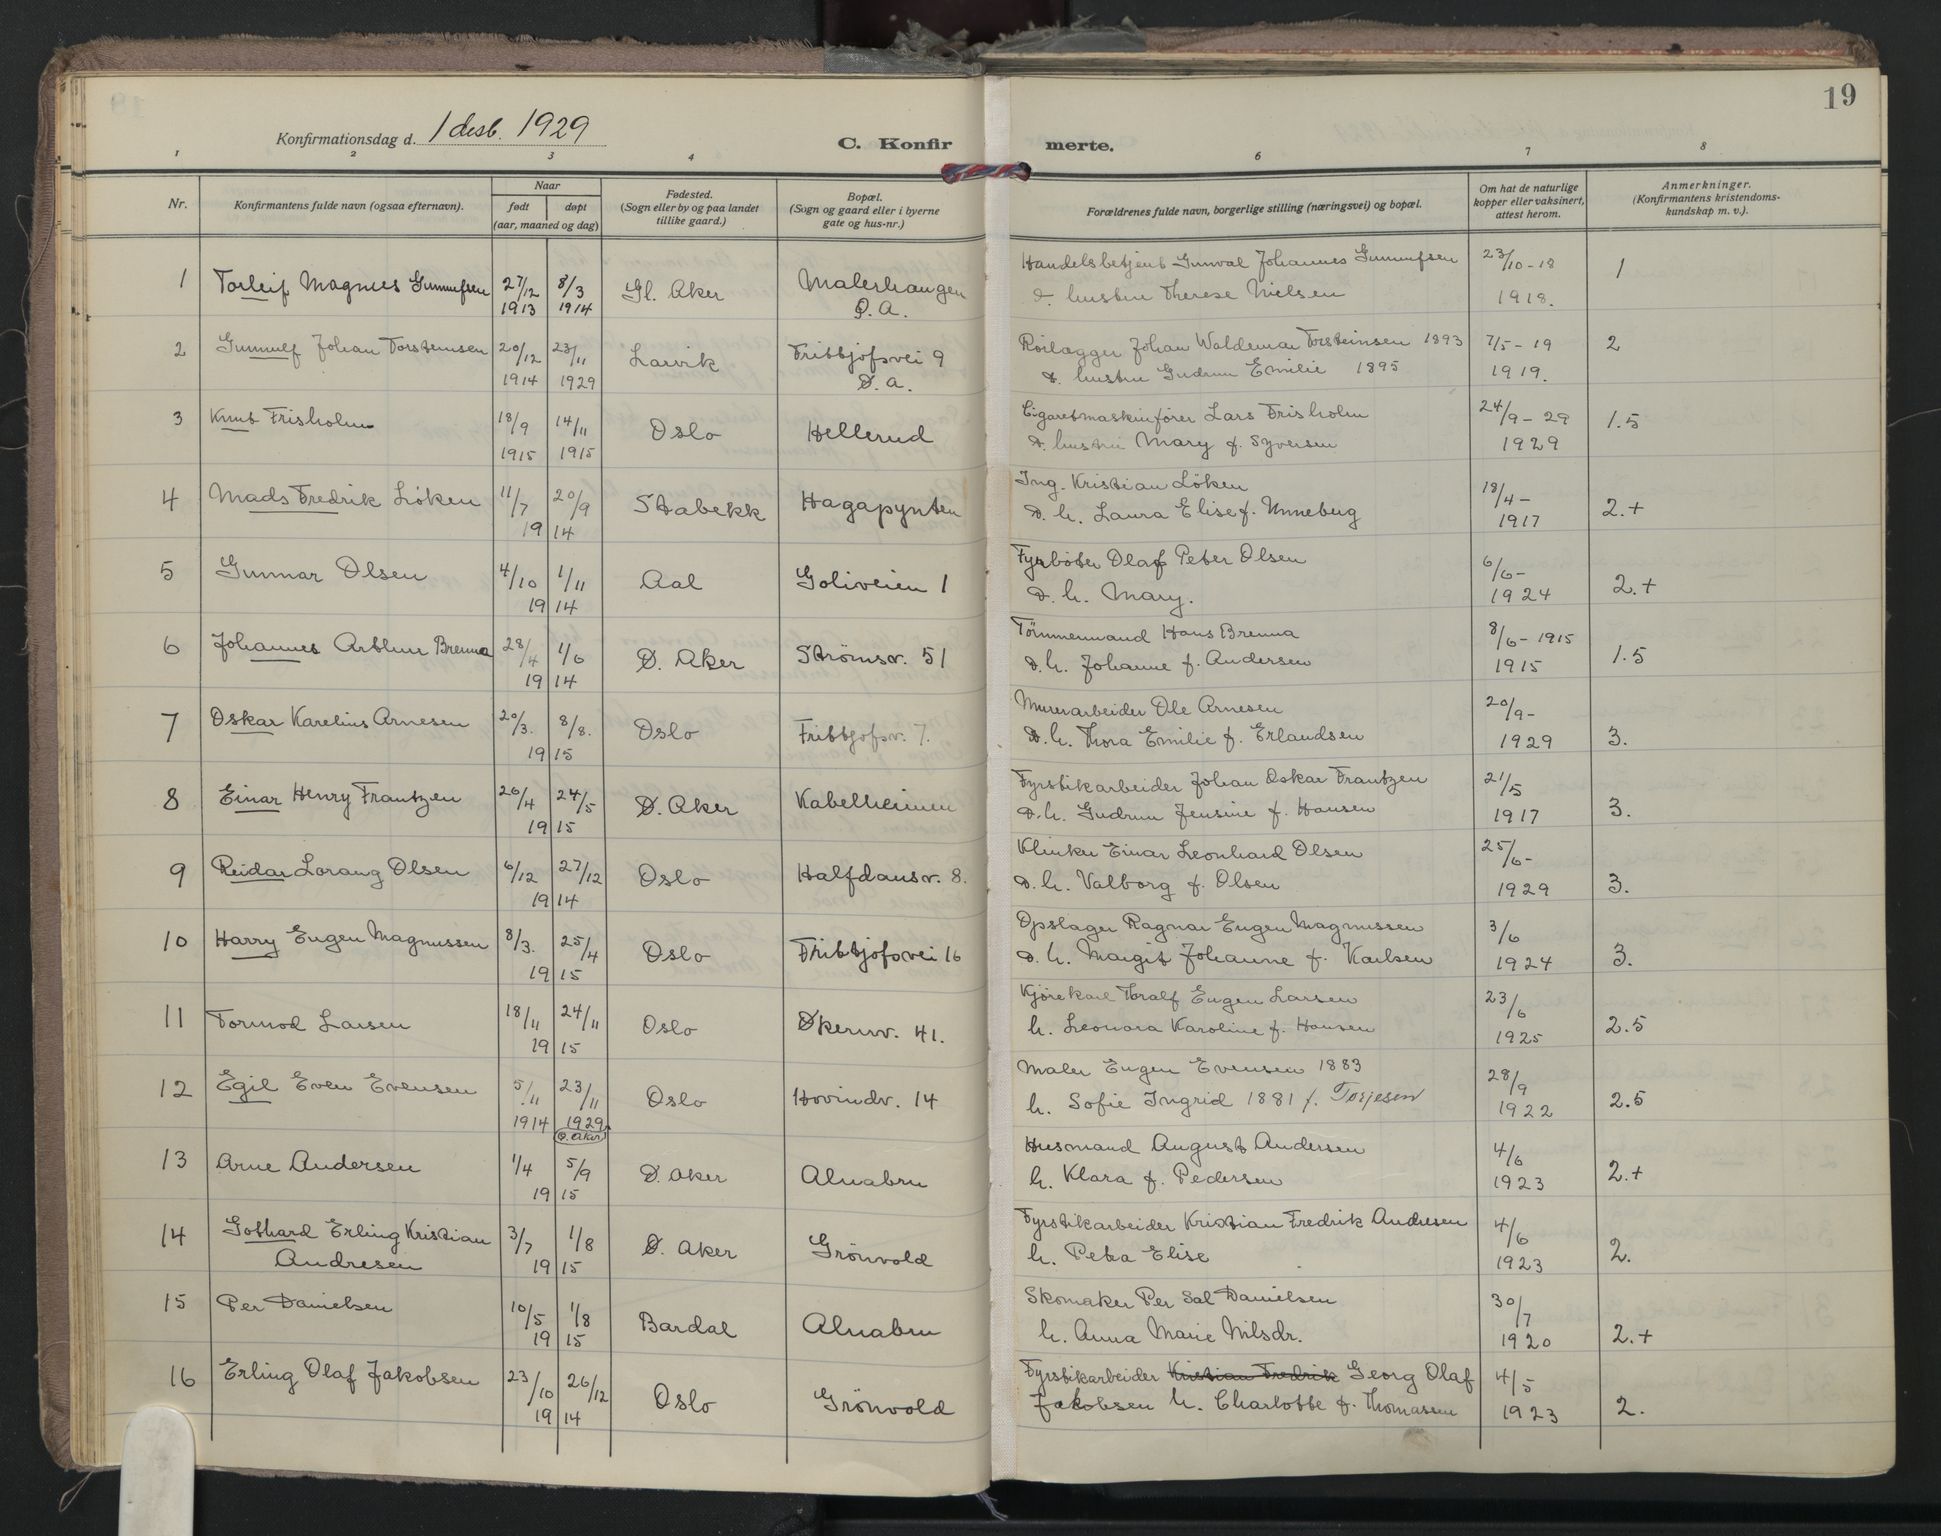 19
Konfirmationsdag d. 1 desb. 1929
C. Konfirmerte.
1 2 3 4 6 7 8
Nr.
Konfirmantens fulde navn (ogsaa efternavn).
Naar
født døpt
(aar, maaned og dag)
Fødested.
(Sogn eller by og paa landet
tillike gaard.)
Bopæl.
(Sogn og gaard eller i byerne
gate og hus-nr.)
Forældrenes fulde navn, borgerlige stilling (næringsvei) og bopæl.
Om hat de naturlige
kopper eller vaksinert,
attest herom.
Anmerkninger.
(Konfirmantens kristendoms-
kundskap m. v.).
1 Torleif Magnus Gunnufsen 27/12 1913 8/3 1914 Gl. Aker Malerhaugen Ø.A. Handelsbetjent Gunval Johannes Gunnufsen 23/10-18 1
& hustru Therese Nielsen 1918.
2 Gunnulf Johan Torsteinsen 20/12 1914 23/11 1929 Larvik Fritjofsvei 9 Ø.A. Rörlægger Johan Waldemar Torsteinsen 1893 7/5-19 2
& hustru Gudrun Emilie 1895 1919.
3 Knut Frisholm 18/9 1915 14/11 1915 Oslo Hellerud Cigaretmaskinfører Lars Frisholm 24/9-29 1.5
& hustru Mary f. Syversen 1929
4 Mads Fredrik Löken 11/7 20/9 1914 Stabekk Hagapynten Ing. Kristian Löken 18/4- 2.+
& h. Laura Elise f. Unneberg 1917
5 Gunnar Olsen 4/10 1/11 1914 Aal Goliveien 1 Fyrböter Olaf Peter Olsen 6/6- 2.+
& h. Mary. 1924
6 Johannes Arthur Brenna 28/4 1/6 1914 Ø. Aker Strömsv. 51 Tömmermand Hans Brenna 8/6-1915 1.5
& h. Johanne f. Andersen 1915
7 Oskar Karelius Arnesen 20/3. 8/8. 1915 Oslo Fritjofsv. 7. Murerarbeider Ole Arnesen 20/9- 3.
& h. Thora Emilie f. Erlandsen 1929
8 Einar Henry Frantzen 26/4 24/5 1915 Ø. Aker Kabelheimen Fyrstikarbeider Johan Oskar Frantzen 21/5 3.
& h. Gudrun Jensine f. Hansen 1917
9 Reidar Lorang Olsen 6/12 27/12 1914 Oslo Halfdansv. 8. Einar Leonhard Olsen 25/6- 3.
& h. Valborg f. Olsen 1929
10 Harry Eugen Magnussen 8/3. 25/4 1915 Oslo Fritjofsvei 16 Opslager Ragnar Eugen Magnussen 3/6 3.
& h. Margit Johanne f. Karlsen 1924
11 Tormod Larsen 18/11 24/11 1915 Oslo Økernv. 41. Kjörekarl Thoralf Eugen Larsen 23/6 2.5
h. Leonora Karoline f. Hansen 1925
12 Egil Even Evensen 5/11 1914 23/11 1929 Ø. Aker Oslo Hovindv. 14 Maler Eugen Evensen 1883 28/9 2.5
h. Sofie Ingrid 1881 f. Torjesen 1922
13 Arne Andersen 1/4 5/9 1915 Ø. Aker Alnabru Husmand August Andersen 4/6 2.+
h. Klara f. Pedersen 1923
14 Gothard Erling Kristian 3/7 1/8 1915 Ø. Aker Grönvold Fyrstikarbeider Kristian Fredrik Andresen 4/6 2.
Andresen h. Petra Elise 1923
15 Per Danielsen 10/5 1/8 1915 Bardal Alnabru Skomaker Per Sal Danielsen 30/7 2.+
h. Anna Marie Nilsdr. 1920
16 Erling Olaf Jakobsen 23/10 26/12 1914 Oslo Grönvold Fyrstikarbeider Kristian Fredrik Georg Olaf 4/5 2.
Jakobsen h. Charlotte f. Thomassen 1923